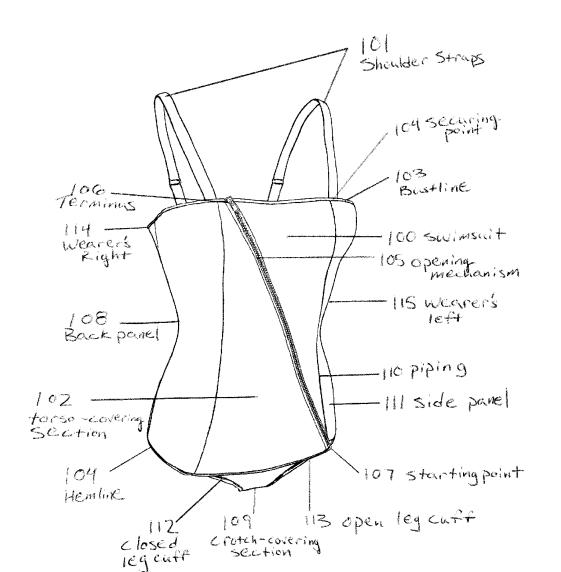 101
Shoulder Straps
104 securing
point
103
Bustline
106
Terminus
114
Wearer's
Right
100 swimsuit
105 opening
mechanism
115 wearer's
left
108
Back panel
110 piping
102
torso-covering
Section
111 side panel
104
Hemline
107 starting point
112
closed
leg cuff
109
Crotch-covering
section
113 open leg cuff